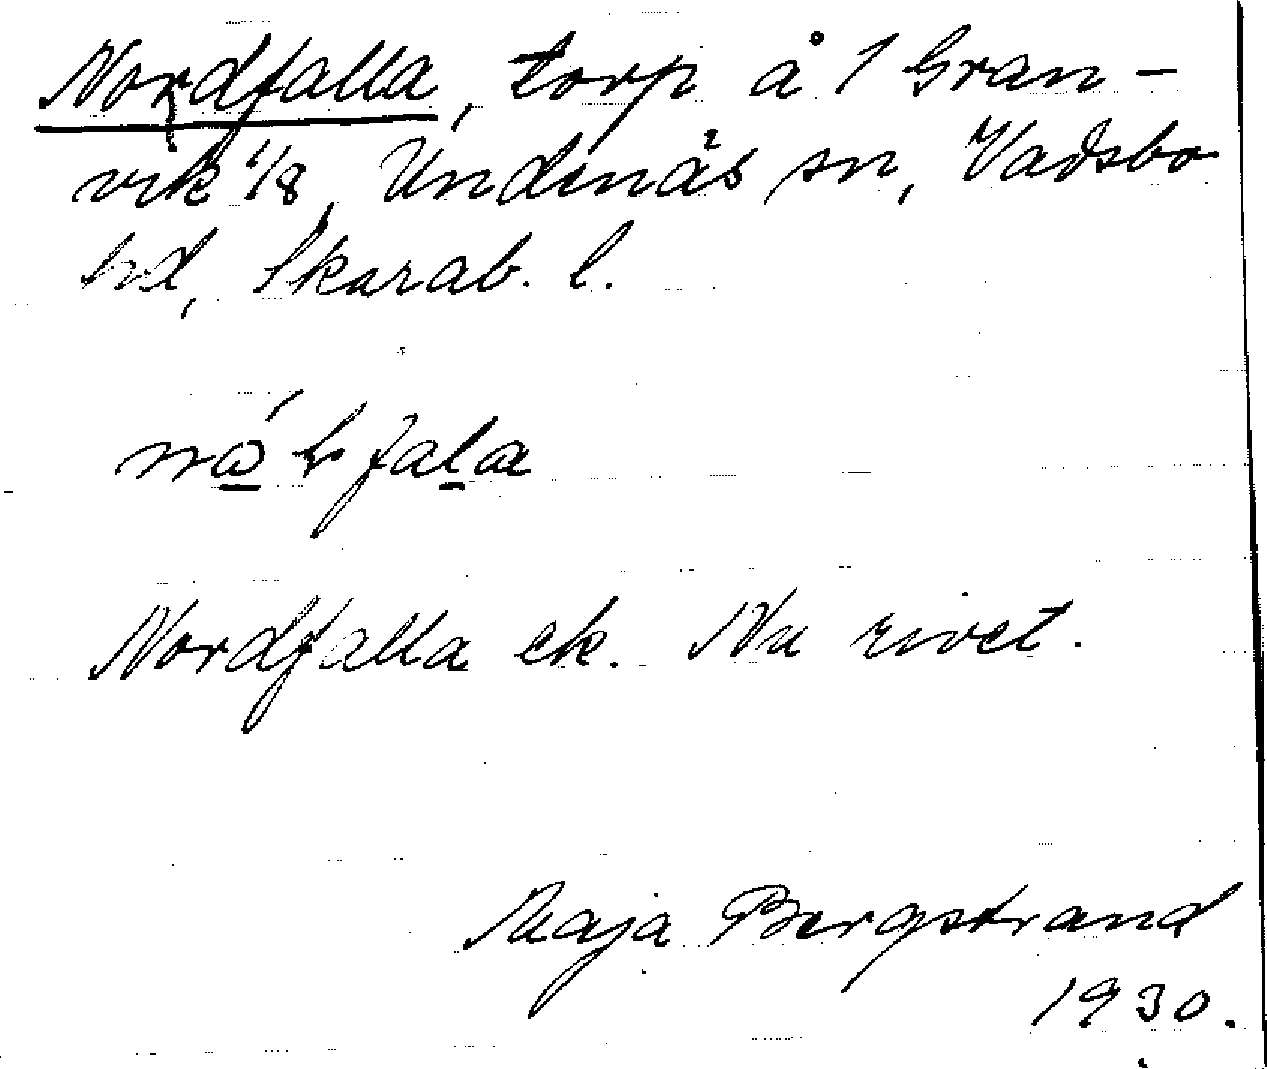 Nordfalla, torp å 1 Gran-
vik 1/8, Undenäs sn, Vadsbo
hd, Skarab. l.
Nordfalla ek. Nu rivet.
Maja Bergstrand
1930.